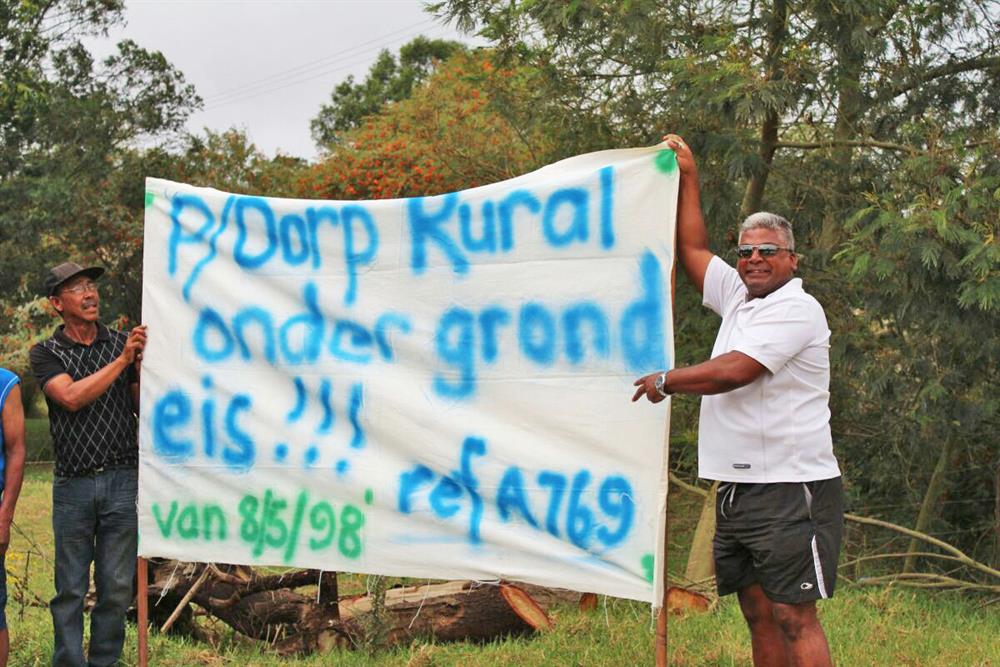 P/Dorp Rural
onder grond
eis!!!
ref A769
van 8/5/98'